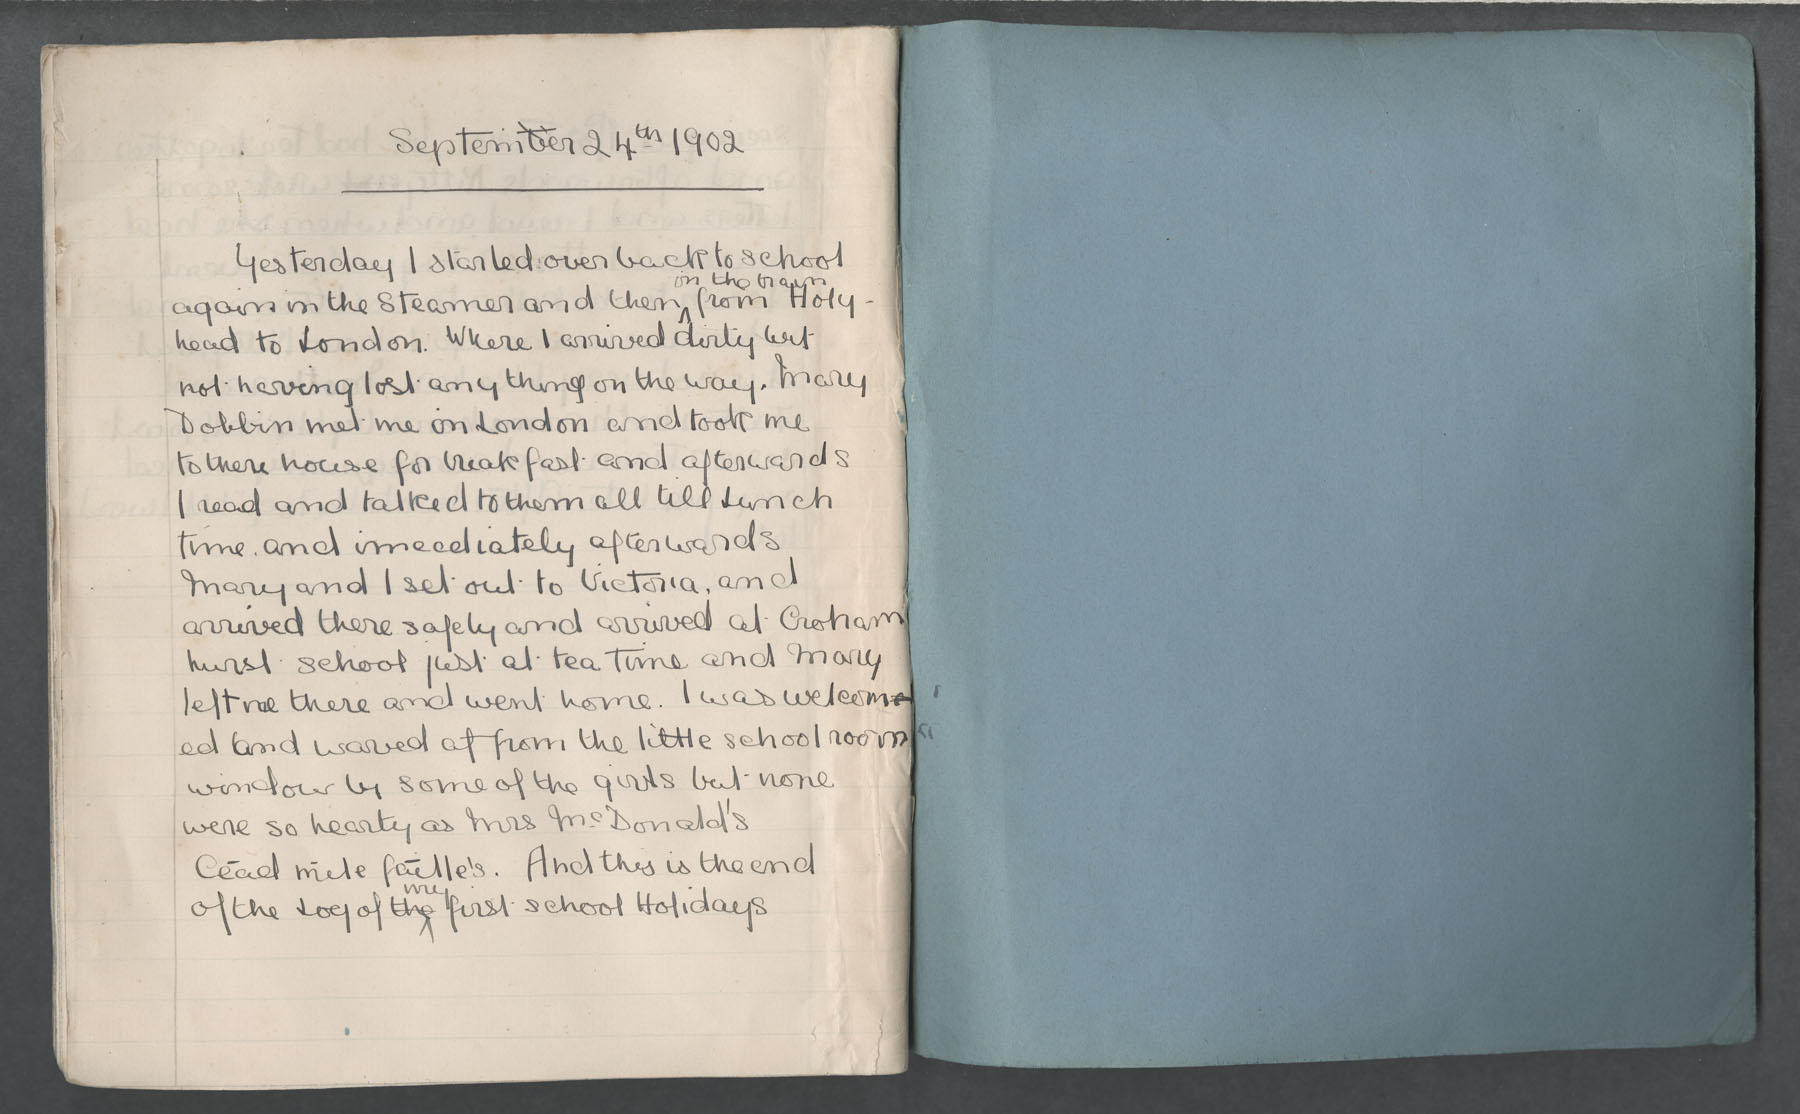 September 24th 1902
Yesterday I started over back to school
on the train
again in the Steamer and then from Holy-
head to London. Where I arrived dirty but
not having lost any thing on the way. Mary
Dobbin met me in London and took me
to there house for breakfast and afterwards
I read and talked to them all till Lunch
time. and imeediately afterwards
Mary and I set out to Victoria, and
arrived there safely and arrived at Croham
hurst school just at tea time and Mary
left me there and went home. I was welcome
ed and waved at from the little school room
window by some of the girls but none
were so hearty as Mrs McDonald's
Cēad mīle fāille's. And this is the end
my
of the Log of the first school Holidays